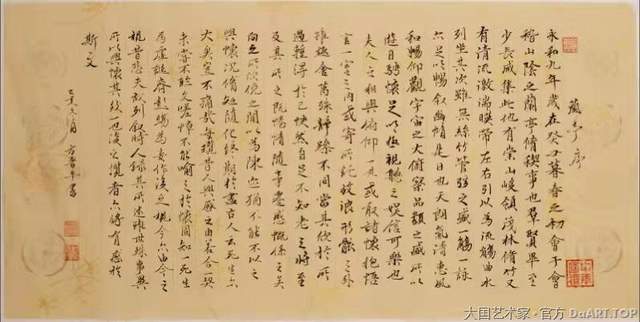 蘭亭序
永和九年歲在癸丑暮春之初會于會
稽山陰之蘭亭脩稧事也羣賢畢至
少長咸集此地有崇山峻領茂林脩竹又
有清流激湍暎帶左右引以為流觴曲水
列坐其次雖無絲竹管弦之盛一觴一詠
亦足以暢叙幽情是日也天朗氣清惠風
和暢仰觀宇宙之大俯察品類之盛所以
遊目騁懷足以極視聽之娛信可樂也
夫人之相與俯仰一世或取諸懷抱悟
言一室之內或寄所託放浪形骸之外
雖趣舍萬殊靜躁不同當其欣於所
遇暫得於己怏然自足不知老之將至
及其所之既惓情隨事遷感慨係之矣
向之所欣俛仰之間以為陳迹猶不能不以之
興懷況脩短隨化終期於盡古人云死生亦
大矣豈不痛哉每攬昔人興感之由若合一契
未嘗不臨文嗟悼不能喻之於懷固知一死生
為虛誕齊彭殤為妄作後之視今亦由今之
視昔悲夫故列叙時人錄其所述雖世殊事異
所以興懷其致一也後之攬者亦將有感於
斯文
大国艺术家·官方 DaART.TOP